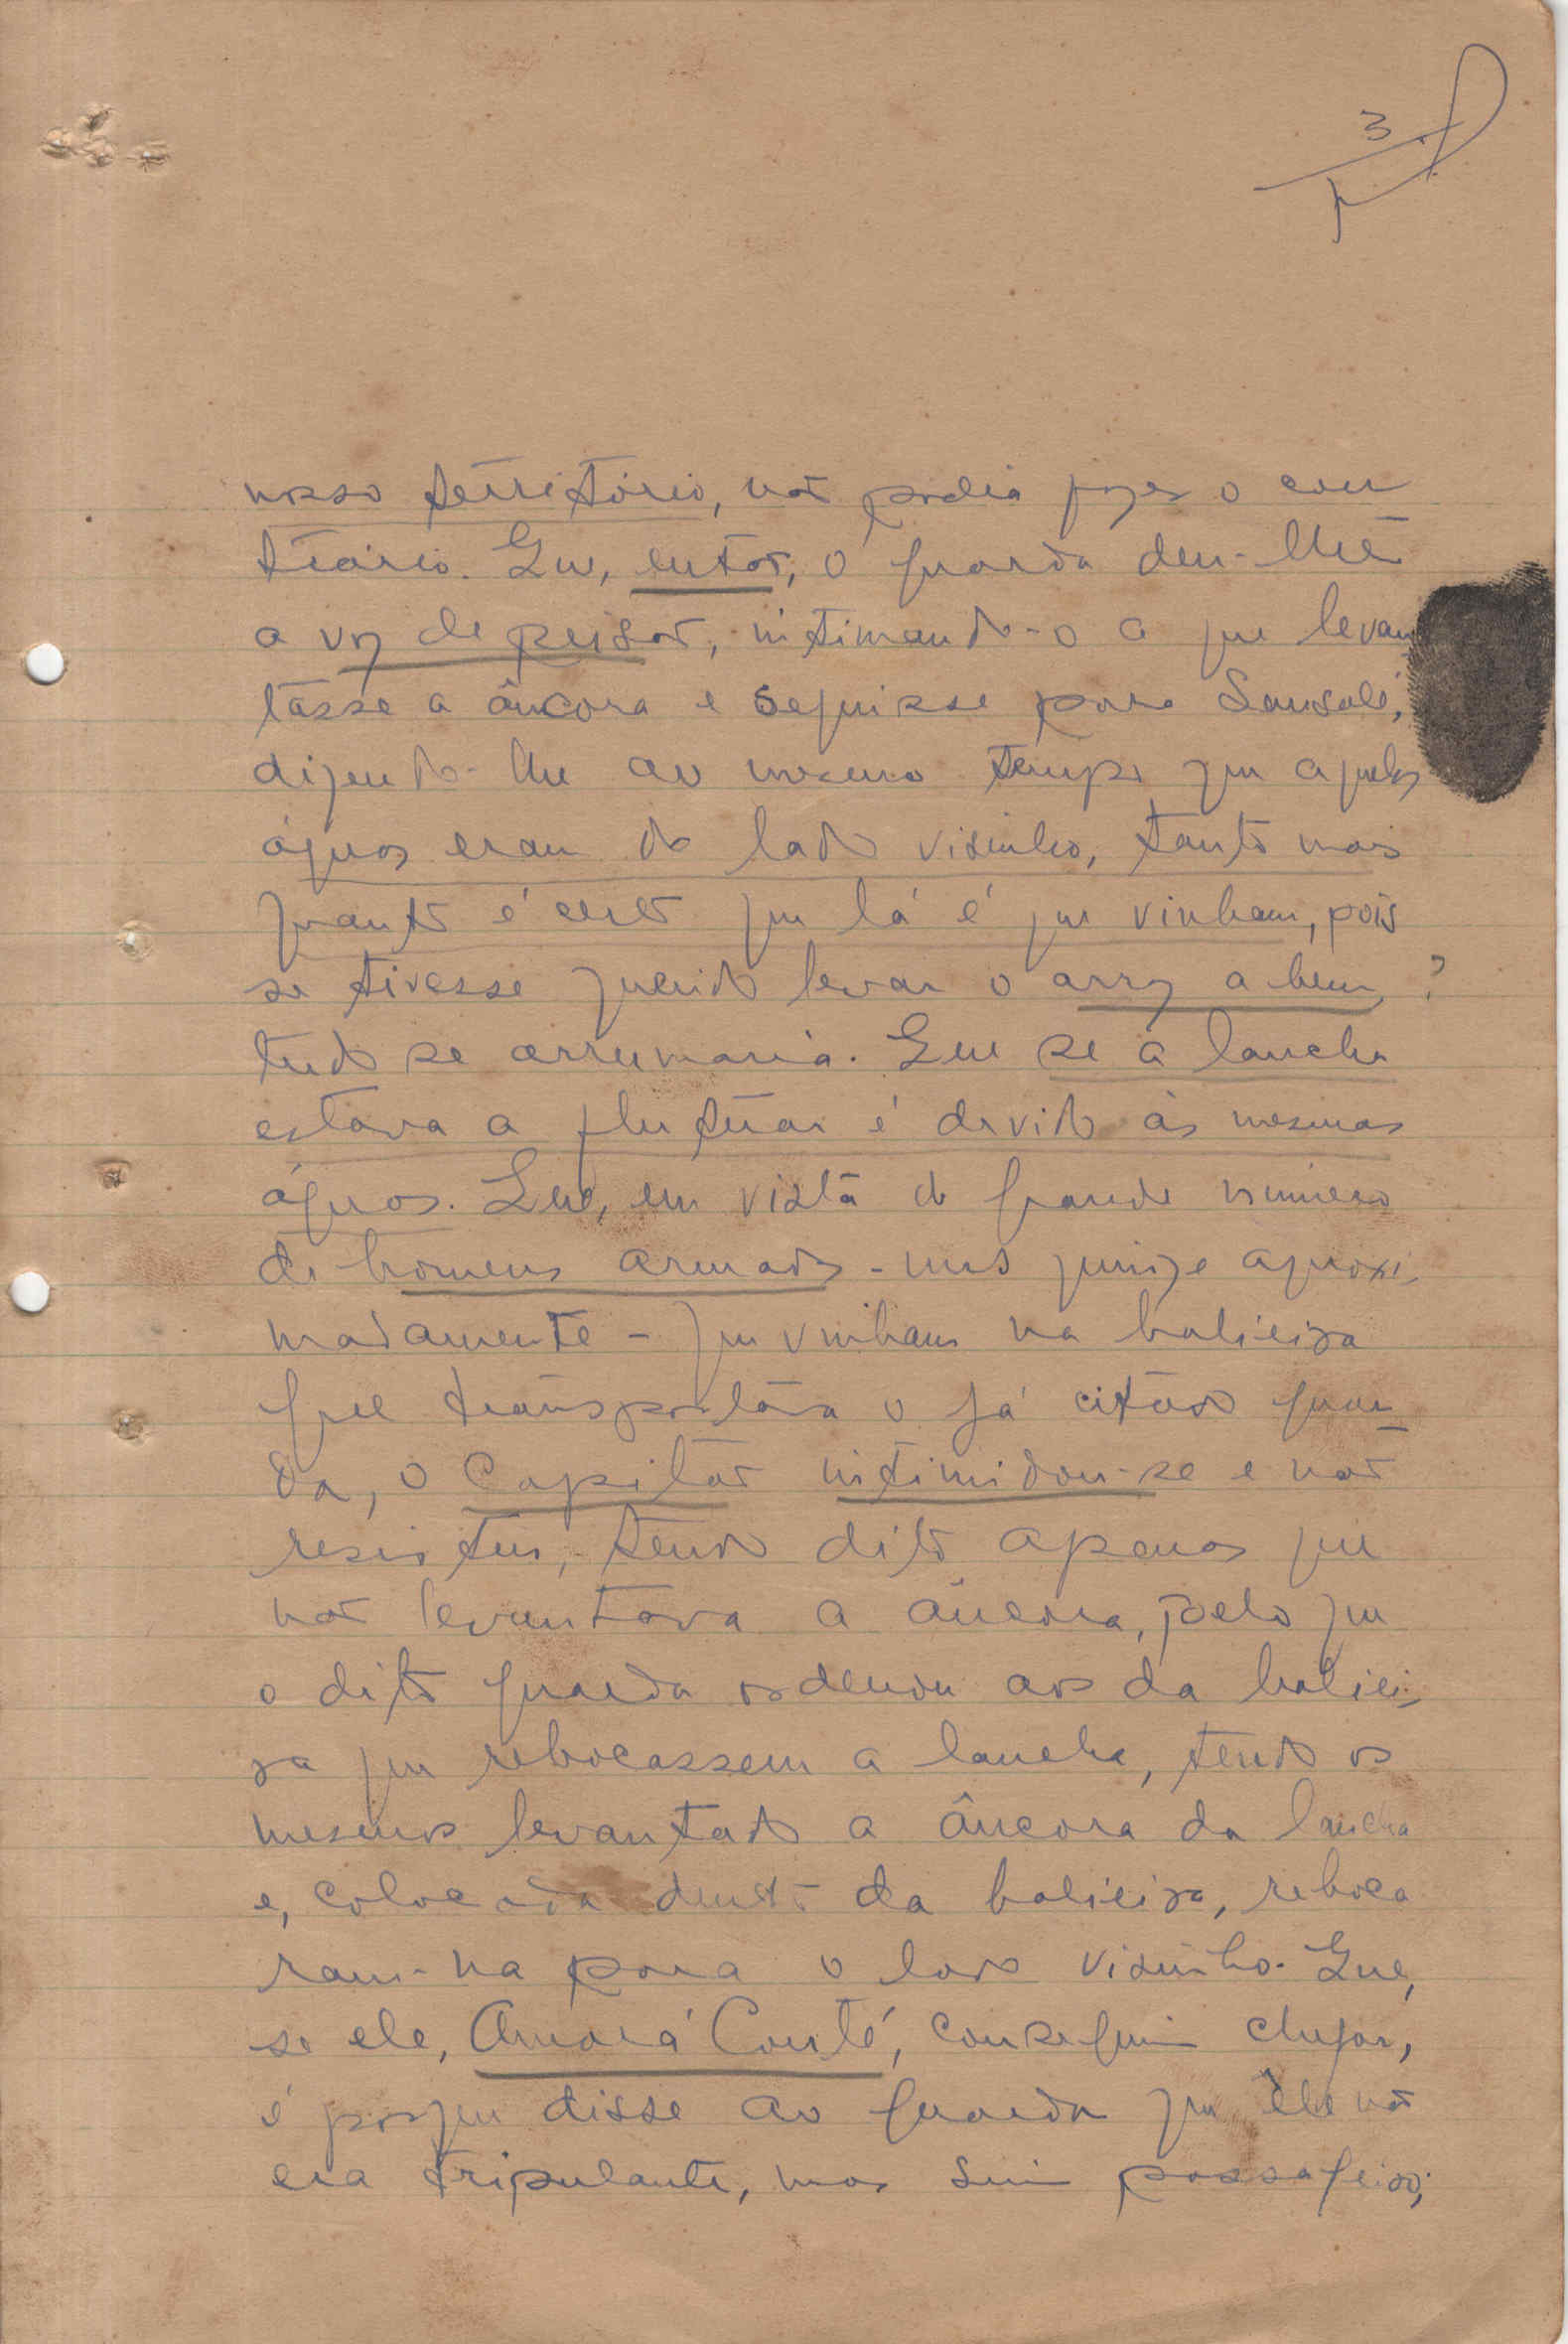 3
nosso território, não podia fazer o con
trário. Que, então, o guarda deu-lhe
a voz de prisão, intimando-o a que levan
tasse a âncora e seguisse para Sansalé,
dizendo-lhe ao mesmo tempo que aquelas
águas eram do lado visinho, tanto mais
quanto é certo que lá é que vinham, pois
se tivesse querido levar o arroz a bem, ?
tudo se arrumaria. Que se a lancha
estava a flutuar é devido às mesmas
águas. Que, em vista do grande número
de homens armados - uns quinze aproxi-
madamente - que vinham na baleeira
que transportara o já citado guar
da, o Capitão intimidou-se e não
resistiu, tendo dito apenas que
não levantava a âncora, pelo que
o dito guarda ordenou aos da baleei-
ra que rebocassem a lancha, tendo os
mesmos levantado a âncora da lancha
e, colocada dentro da baleeira, reboca
ram-na para o lado visinho. Que,
se ele, Amará Conté, conseguiu chegar,
é porque disse ao guarda que êle não
era tripulante, mas sim passageiro;